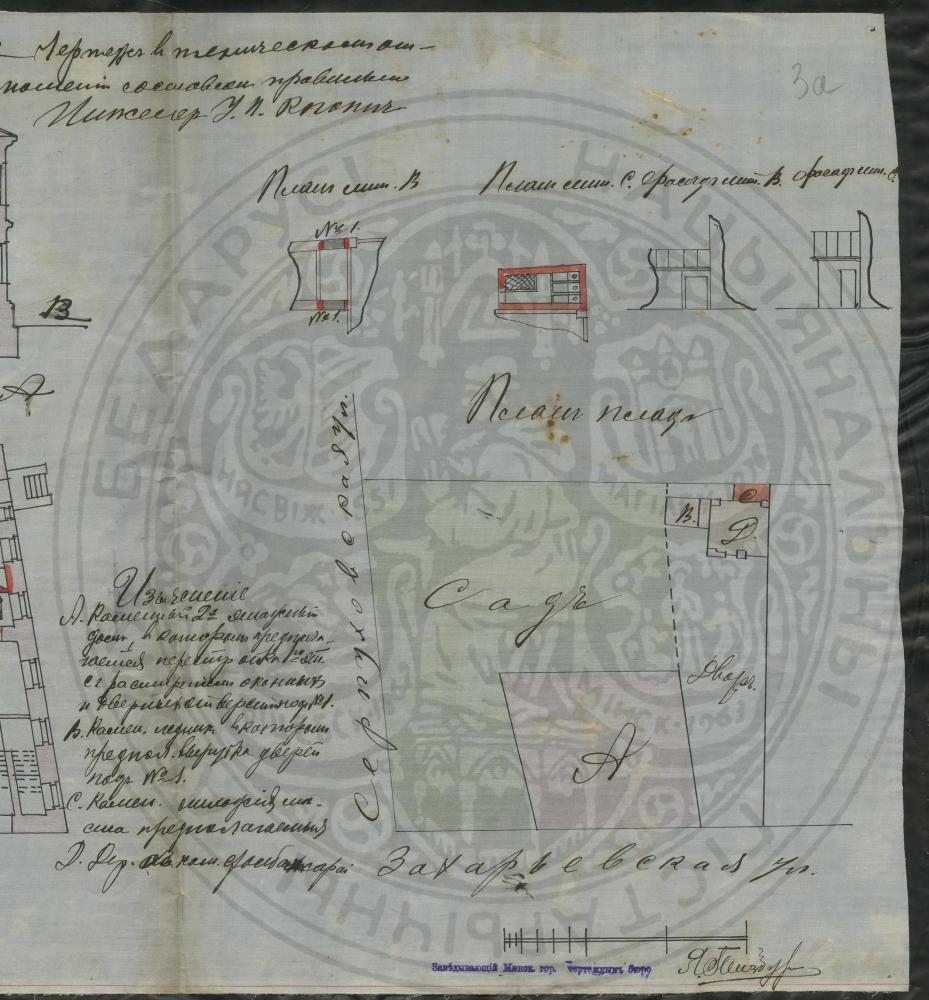 Чертежъ въ техническомъ от-
ношеніи составленъ правильно
Инженеръ У. П.
3а
Планъ лит. В
Планъ лит. С.
Фасадъ лит. В.
Фасадъ лит. С.
№ 1.
№ 1.
В
А
Планъ плаца
Серпуховская ул.
С
В.
Д.
Садъ
Дворъ.
А
Изъясненіе
А. Каменный 2х этажный
домъ, въ которомъ предпола-
гается перестройка 1го эт.
съ расширеніемъ оконныхъ
и дверныхъ отверстій подъ №1.
В. Камен. ледникъ въ которомъ
предпол. вырубка дверей
подъ № 1.
С. Камен. отхожія мѣ-
ста предполагаемыя
Д. Дер.
Захарьевская ул.
Завѣдывающій Минск. гор. чертежнымъ бюро
БЕЛАРУСІ
НАЦЫЯНАЛЬНЫ
ГІСТАРЫЧНЫ
НЯСВІЖ
МІНСК